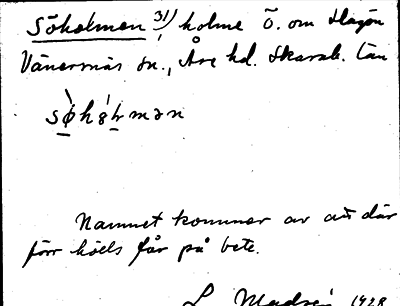 Söholmen 31) holme ö. om Hagön
Vänersnäs sn., Åse hd. Skarab. län
Namnet kommer av att där
förr hölls får på bete.
L. 1928